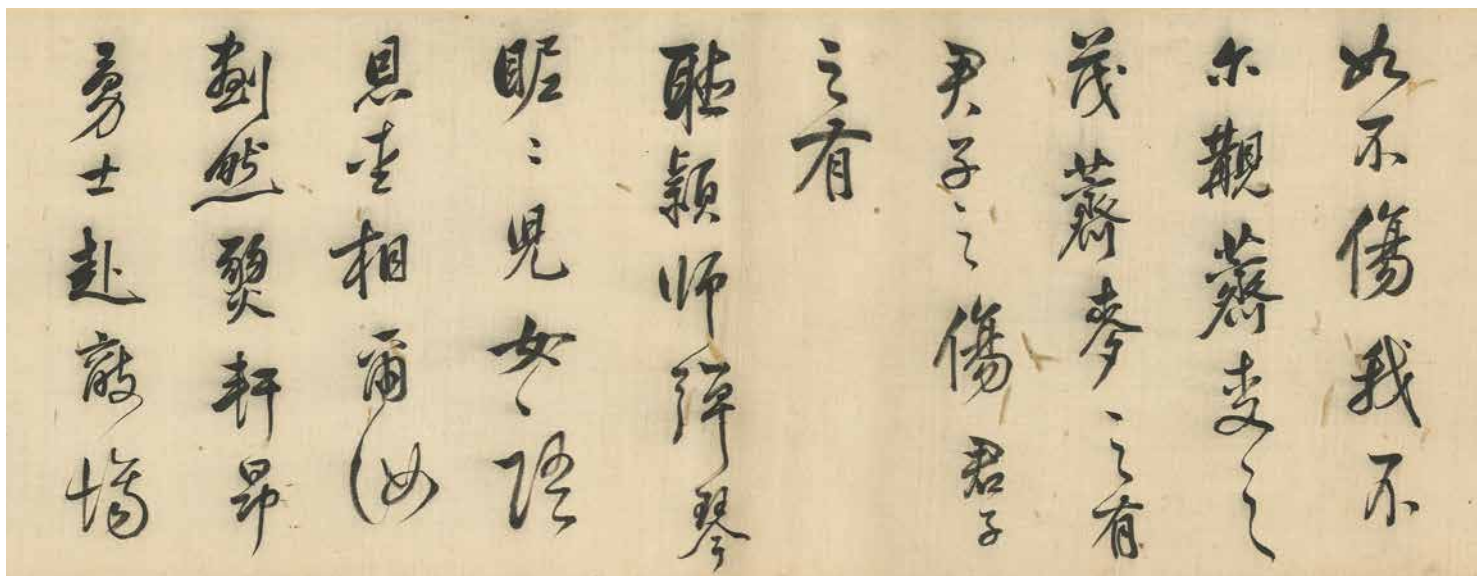 如不傷我不
尔覯薺麦之
茂薺麥之有
君子之傷君子
之有
聽穎師彈琴
昵〻兒女語
恩怨相爾汝
劃然變軒昂
勇士赴敵場